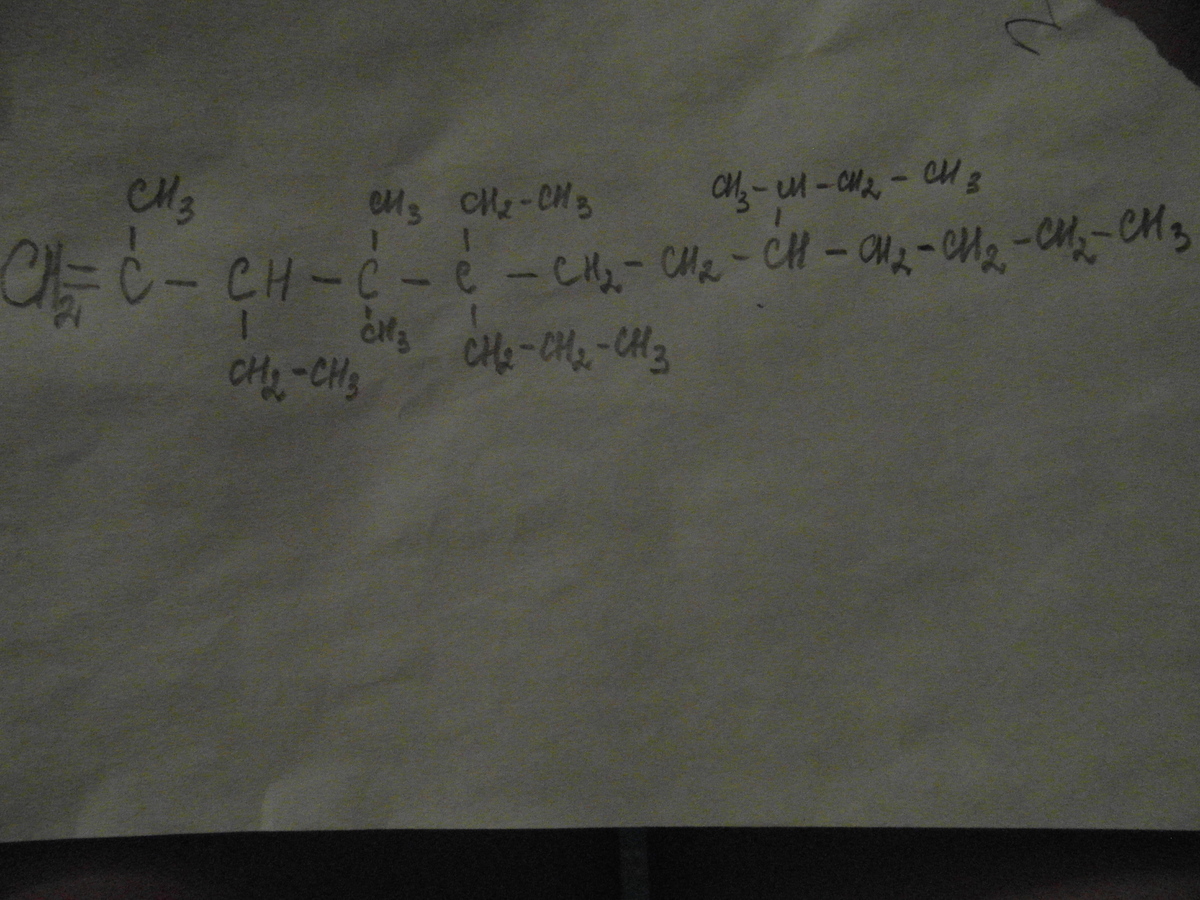 CH3 CH3 CH2-CH3 CH3-CH-CH2-CH3
CH2=C-CH-C-C-CH2-CH2-CH-CH2-CH2-CH2-CH3
CH2-CH3 CH3 CH2-CH2-CH3